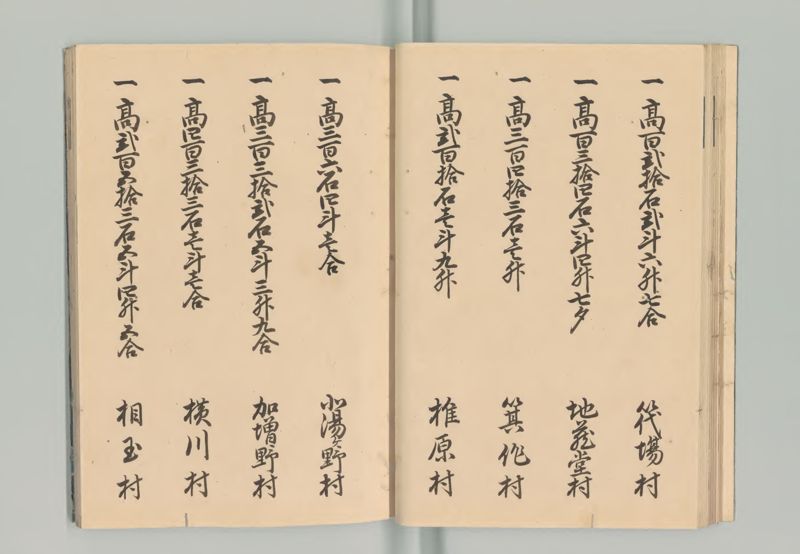 一高百弐拾石弐斗六升七合 筏場村
一高百三拾四石六斗四升七夕 地蔵堂村
一高三百四拾三石壱升 箕作村
一高弐百拾石壱斗九升 椎原村
一高三百六石四斗壱合 小湯ケ野村
一高三百三拾弐石五斗三升九合 加増野村
一高四百三拾三石壱斗壱合 横川村
一高弐百五拾三石五斗四升五合 相玉村